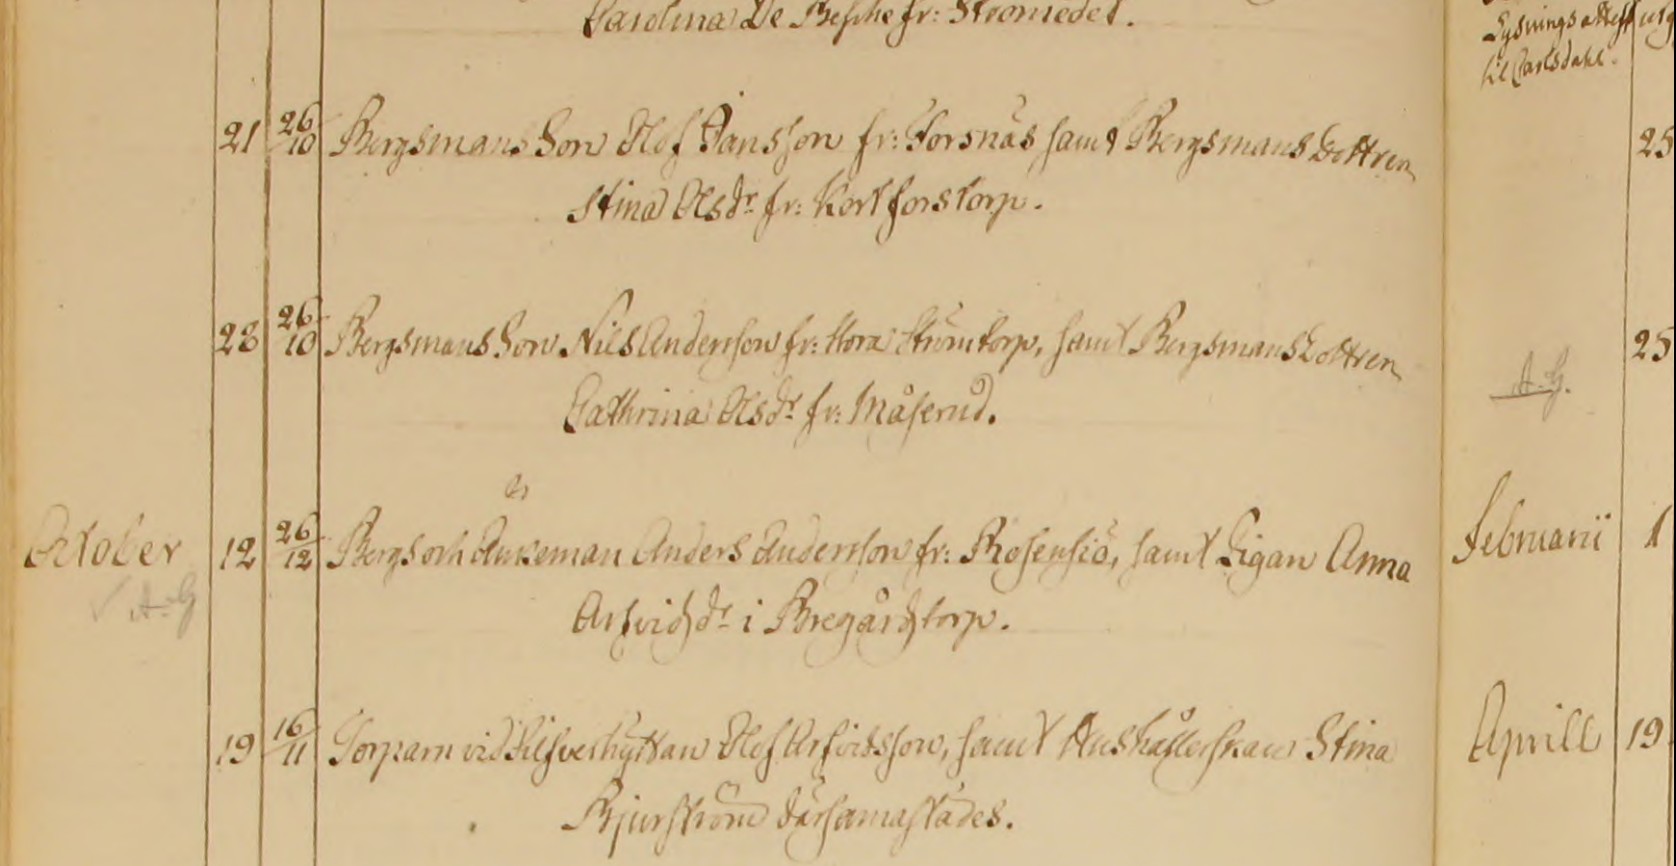 Carolina De Besche fr: Strömedet.
21 26/10 Bergsmans Son Olof Jansson fr: Forsnäs samt Bergsmans Dottren
Stina Olsdr fr: Kortforstorp.
28 26/10 Bergsmans Son Nils Andersson fr: Stora Strömtorp, samt Bergsmans Dottren
Cathrina Olsdr fr: Måserud.
October 12 26/12 Bergs och Änkeman Anders Andersson fr: Rosensjö, samt Pigan Anna
A.G
Arfvidsdr i Bregårdstorp.
19 16/11 Torparn vid Silfverhyttan Olof Arfvidsson, samt Hushållerskan Stina
Bjurström därsamastädes.
Lysnings attest
til Carlsdahl.
25
25
A.G.
Februarii 1
Aprill 19